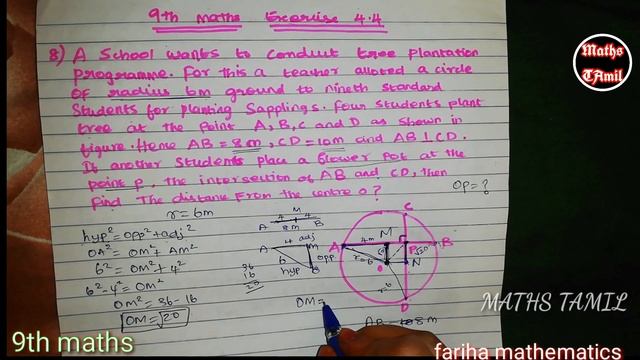 9th maths Exercise 4.4
8) A School wants to Conduct tree plantation
programme. For this a teacher alloted a circle
of radius 6m ground to nineth standard
Students for planting Sapplings. Four students plant
tree at the point A, B, C and D as shown in
figure. Heme AB = 8m, CD = 10m and AB ⊥ CD.
If another Students place a flower pot at the
point P, the intersection of AB and CD, then
find The distance from the centre O?
OP = ?
r = 6m
hyp² = opp² + adj²
OA² = OM² + AM²
6² = OM² + 4²
6² - 4² = OM²
OM² = 36 - 16
OM = √20
M
4 4
A 8 B
4 adj
A M
6 opp
hyp O
36
16
20
OM =
C
A 4m M P B
r=6 N
O
D
AB = 8m
Maths
TAmil
MATHS TAMIL
9th maths
fariha mathematics